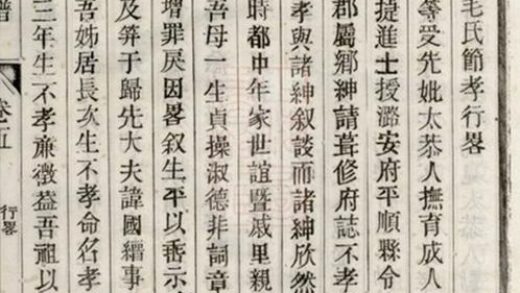 毛氏節孝行畧
等受先妣太恭人撫育成人
捷進士授潞安府平順縣令
郡屬鄉紳請葺修府誌不孝
孝與諸紳叙談而諸紳欣然
時都中年家世誼暨戚里親
吾母一生貞操淑德非詞章
增罪戾因畧叙生平以垂示
及笄于歸先大夫諱國繒事
吾姊居長次生不孝命名孝
三年生不孝亷徵葢吾祖以
譜
卷之五
行畧